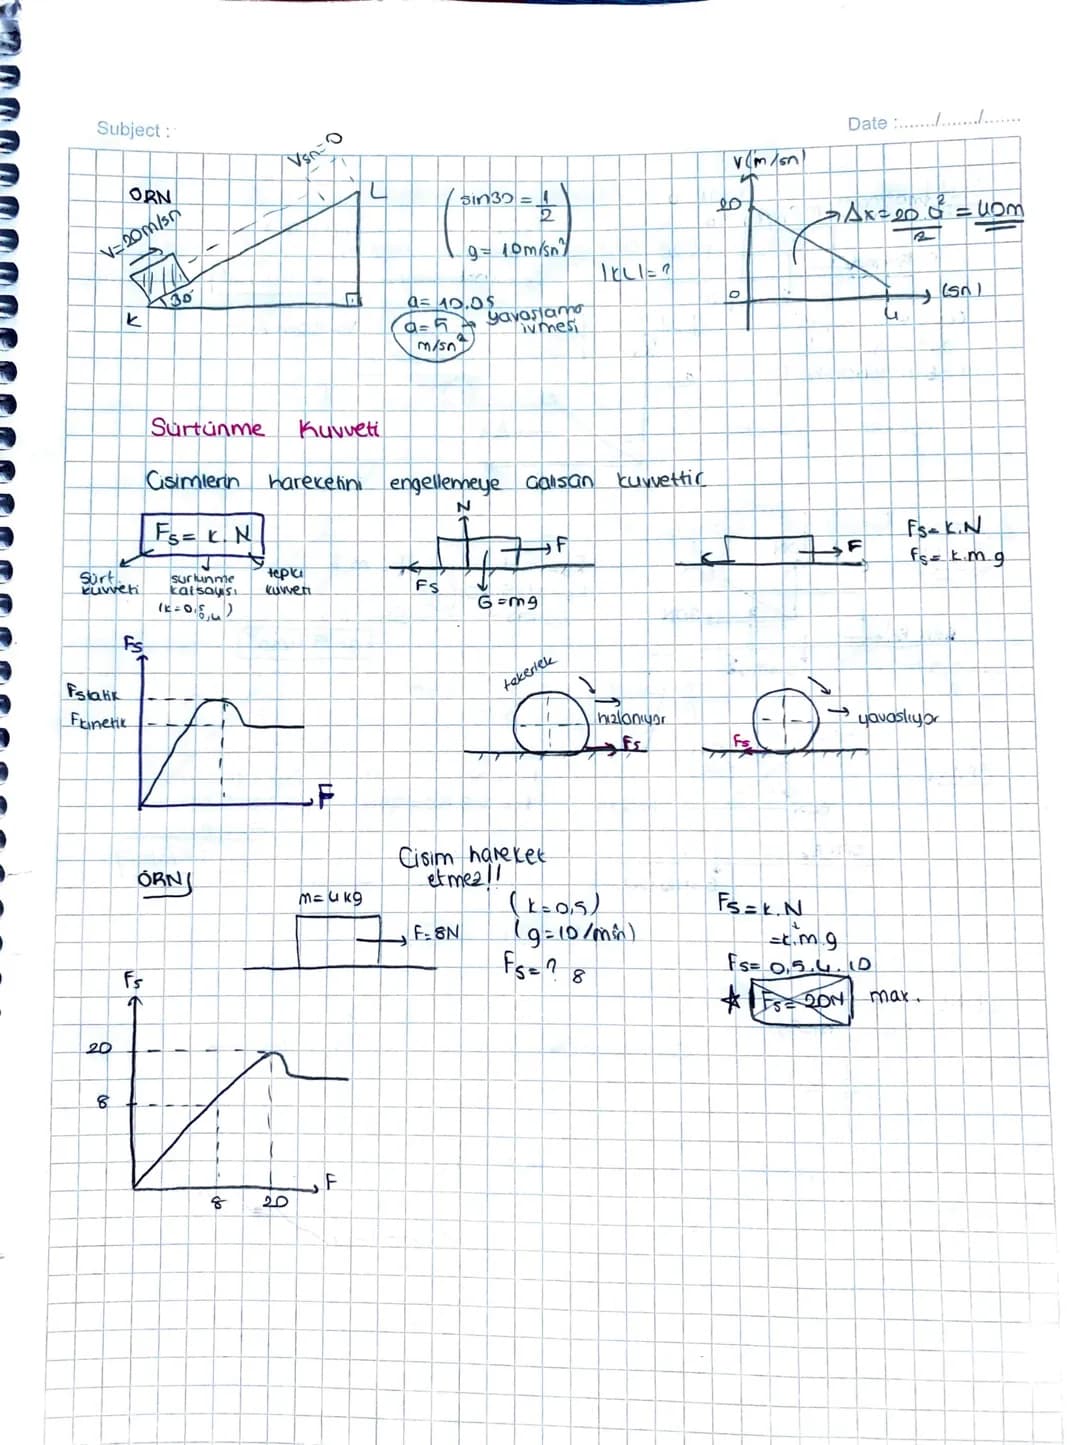 Subject :
Date :......./......./.......
ÖRN
V=20m/sn
Vsn=0
L
30°
K
sin30 = 1/2
g= 10m/sn²
|KL|= ?
a= 10.0,5
a=5 m/sn² → yavaşlama ivmesi
V(m/sn)
20
0
4
(sn)
Δx= 20.4²/2 = 40m
Sürtünme Kuvveti
Cisimlerin hareketini engellemeye çalışan kuvvettir
Fs= k.N
Sürt. kuvveti
surtunme katsayısı
tepki kuvveti
N
F
Fs
G=mg
F
Fs= k.N
fs= k.m.g
Fs
Fstatik
Fkinetik
F
tekerlek
hızlanıyor
Fs
yavaslıyor
Fs
ÖRN
Cisim hareket
etmez!!
m=4kg
F=8N
(k=0,5)
Fs=? 8
Fs=k.N
=k.m.g
Fs= 0,5.4.10
Fs= 20N max.
Fs
20
8
8
20
F